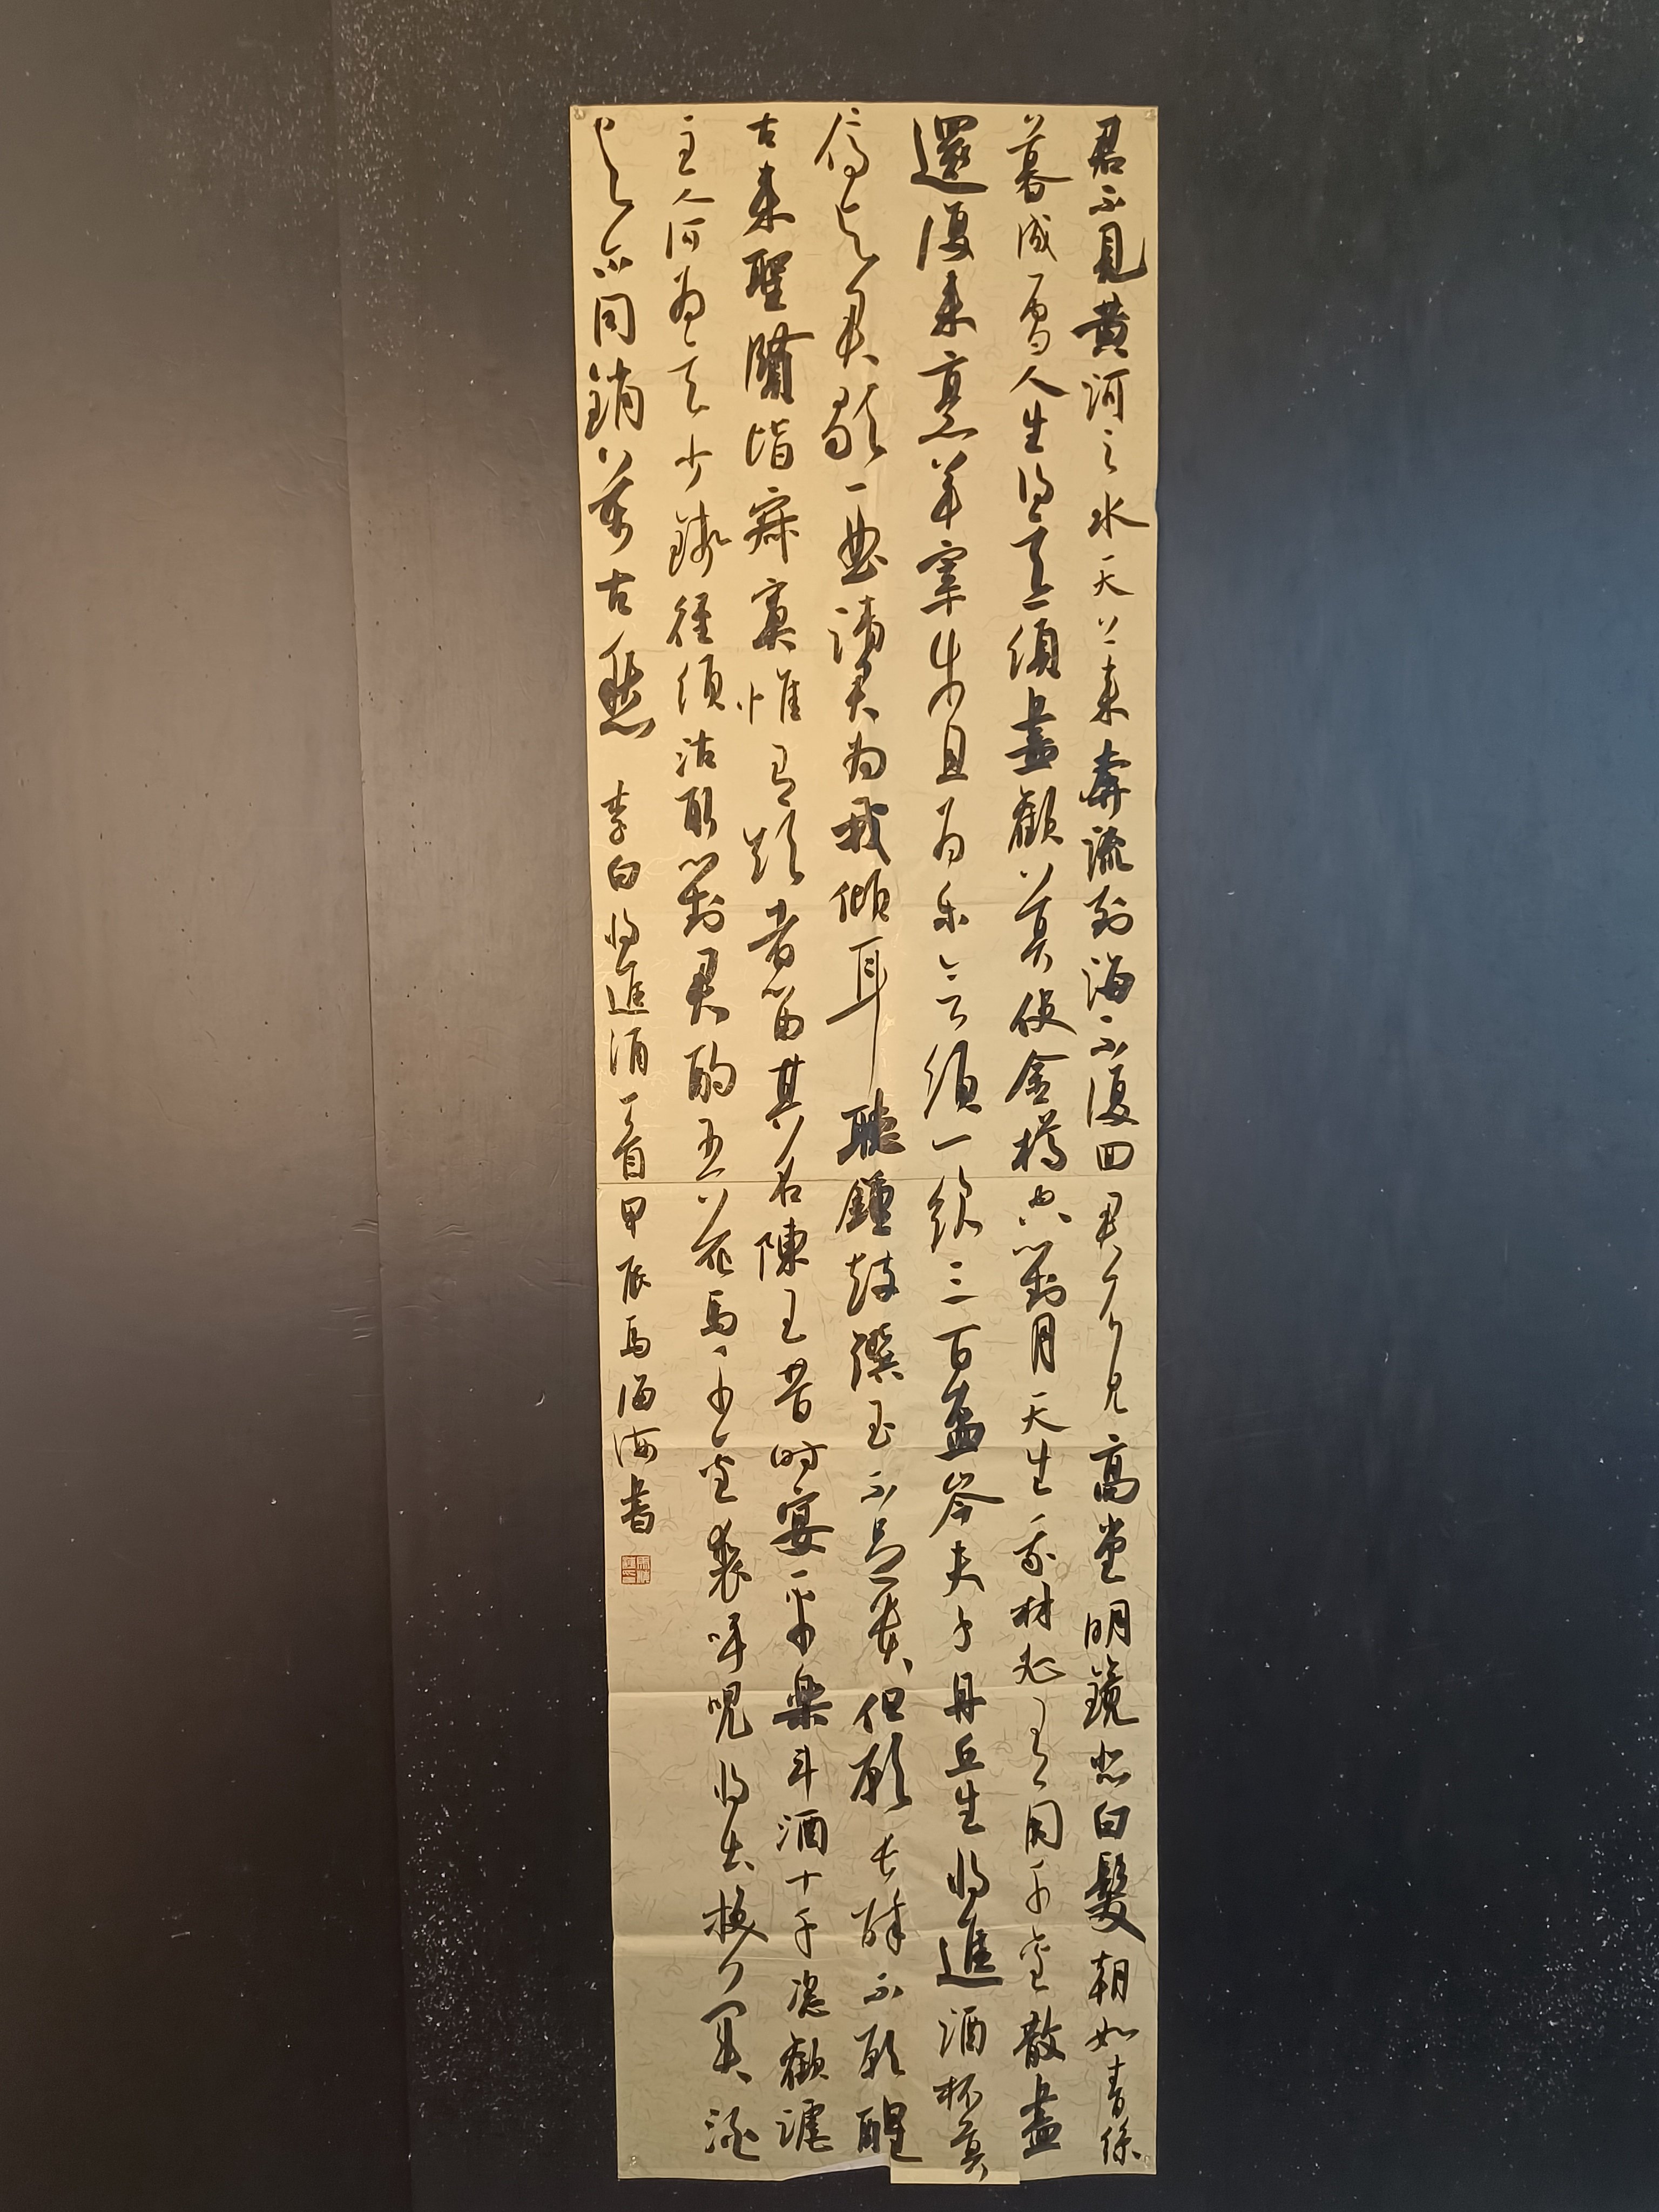 君不見黃河之水天上來奔流到海不復回君不見高堂明鏡悲白髮朝如青絲
暮成雪人生得意須盡歡莫使金樽空對月天生我材必有用千金散盡
還復來烹羊宰牛且為樂會須一飲三百杯岑夫子丹丘生將進酒杯莫
停與君歌一曲請君為我傾耳聽鐘鼓饌玉不足貴但願長醉不願醒
古來聖賢皆寂寞惟有飲者留其名陳王昔時宴平樂斗酒十千恣歡謔
主人何為言少錢徑須沽取對君酌五花馬千金裘呼兒將出換美酒
與爾同銷萬古愁 李白將進酒一首甲辰馬海書